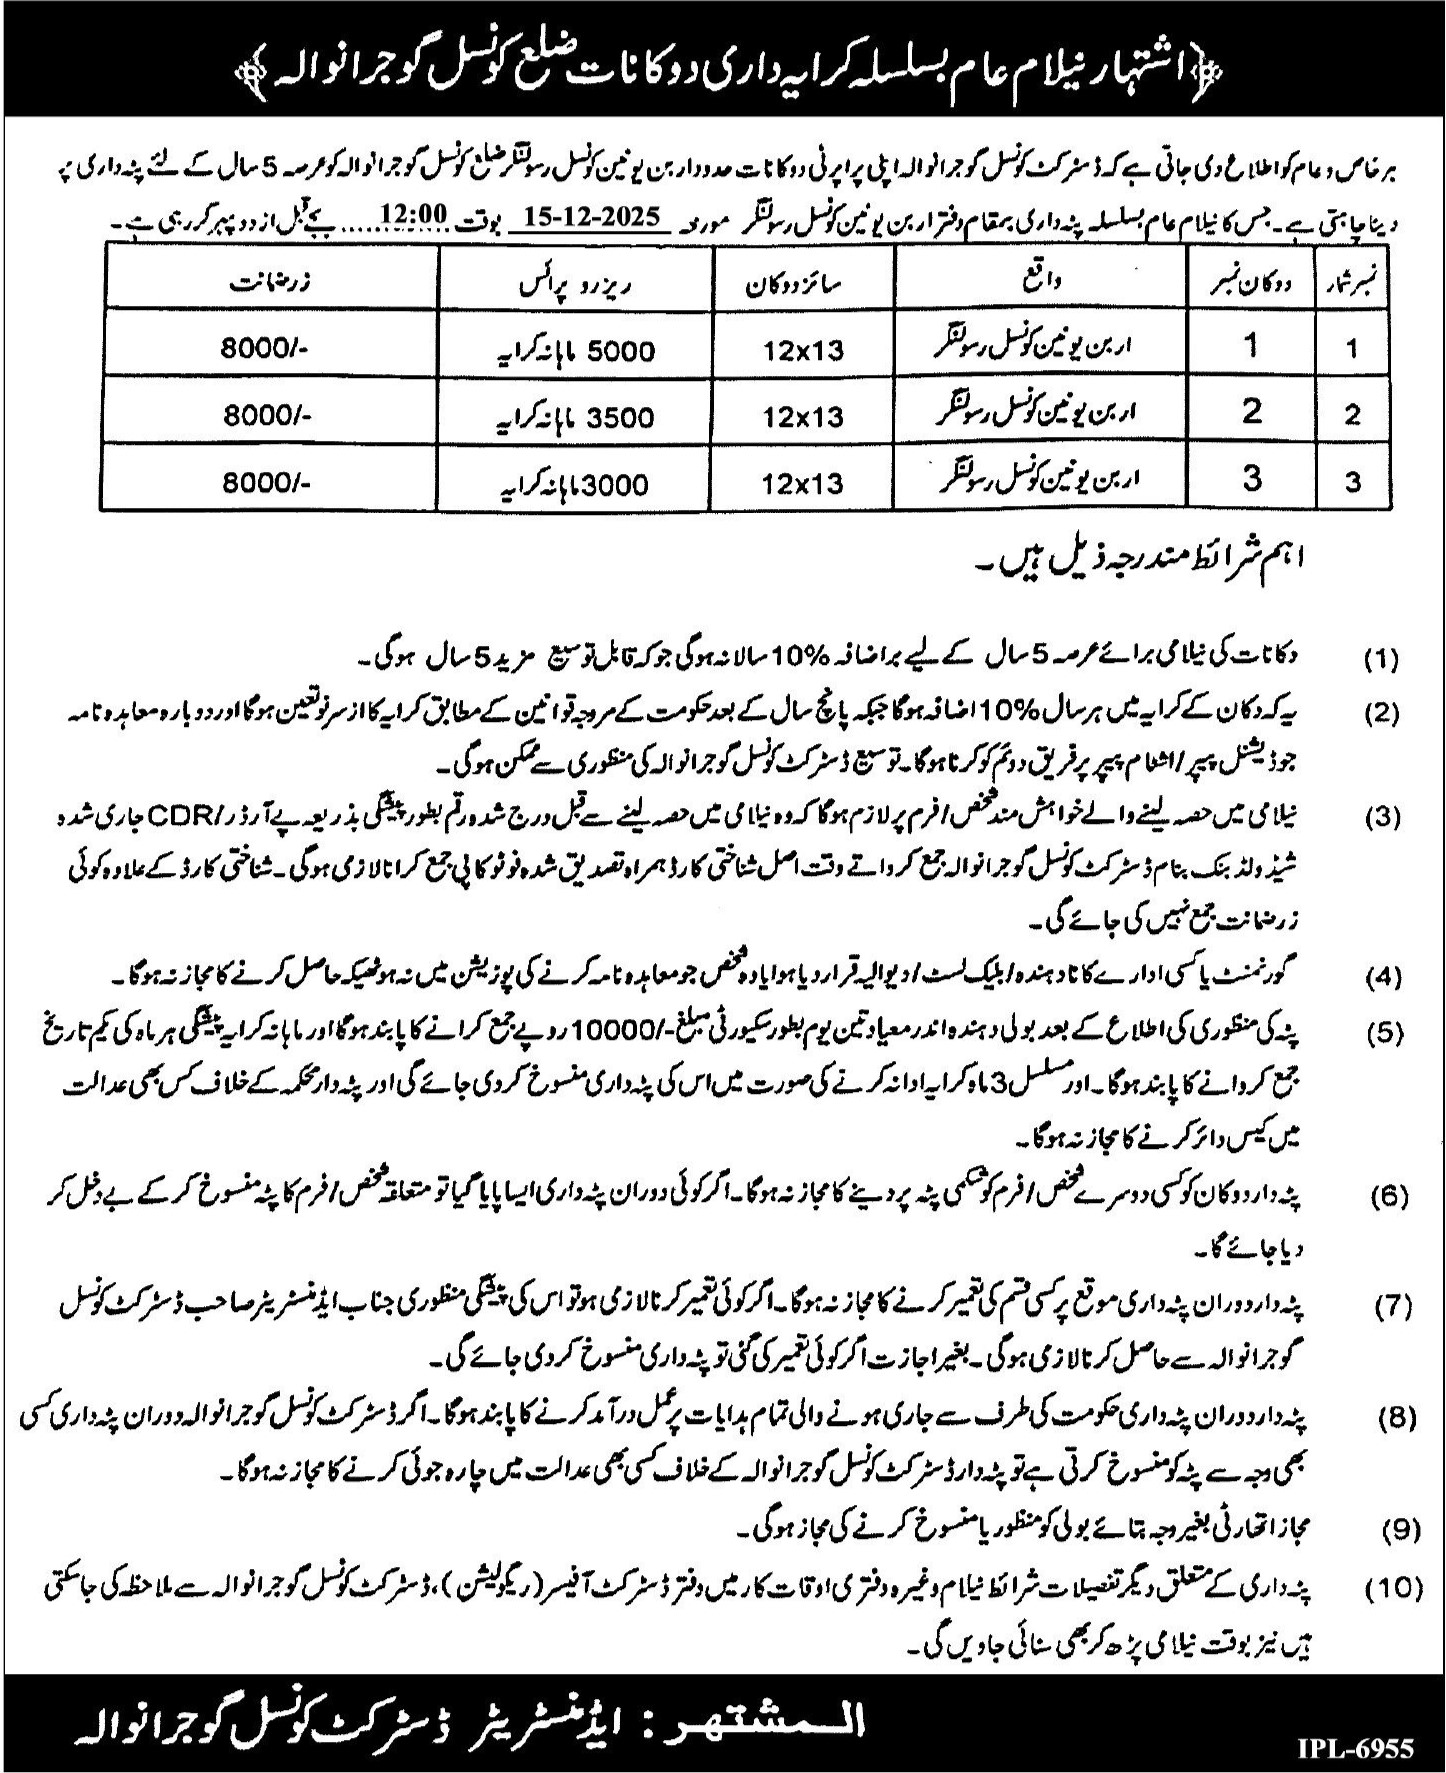 اشتہار نیلام عام بسلسلہ کرایہ داری دوکانات ضلع کونسل گوجرانوالہ
ہر خاص و عام کو اطلاع دی جاتی ہے کہ ڈسٹرکٹ کونسل گوجرانوالہ اپنی پراپرٹی دوکانات حدود اربن یونین کونسل رسولنگر ضلع کونسل گوجرانوالہ کو عرصہ 5 سال کے لئے پٹہ داری پر
دینا چاہتی ہے۔ جس کا نیلام عام بسلسلہ پٹہ داری بمقام دفتر اربن یونین کونسل رسولنگر مورخہ 15-12-2025 بوقت 12:00 بجے قبل از دوپہر کر رہی ہے۔
نمبر شمار دوکان نمبر واقع سائز دوکان ریزرو پرائس زرضمانت
1 1 اربن یونین کونسل رسولنگر 12x13 5000 ماہانہ کرایہ 8000/-
2 2 اربن یونین کونسل رسولنگر 12x13 3500 ماہانہ کرایہ 8000/-
3 3 اربن یونین کونسل رسولنگر 12x13 3000 ماہانہ کرایہ 8000/-
اہم شرائط مندرجہ ذیل ہیں۔
(1) دکانات کی نیلامی برائے عرصہ 5 سال کے لیے ہر اضافہ 10% سالانہ ہوگی جو کہ قابل توسیع مزید 5 سال ہوگی۔
(2) یہ کہ دکان کے کرایہ میں ہر سال 10% اضافہ ہوگا جبکہ پانچ سال کے بعد حکومت کے مروجہ قوانین کے مطابق کرایہ کا ازسرنو تعین ہوگا اور دوبارہ معاہدہ نامہ
جوڈیشنل پیپر/اشٹام پیپر پر فریق دوئم کو کرنا ہوگا۔ توسیع ڈسٹرکٹ کونسل گوجرانوالہ کی منظوری سے ممکن ہوگی۔
(3) نیلامی میں حصہ لینے والے خواہش مند شخص/فرم پر لازم ہوگا کہ وہ نیلامی میں حصہ لینے سے قبل درج شدہ رقم بطور پیشگی بذریعہ پے آرڈر/CDR جاری شدہ
شیڈولڈ بنک بنام ڈسٹرکٹ کونسل گوجرانوالہ جمع کرواتے وقت اصل شناختی کارڈ ہمراہ تصدیق شدہ فوٹو کاپی جمع کرانا لازمی ہوگی۔ شناختی کارڈ کے علاوہ کوئی
زرضمانت جمع نہیں کی جائے گی۔
(4) گورنمنٹ یا کسی ادارے کا نادہندہ/بلیک لسٹ/دیوالیہ قرار دیا ہوا یا وہ شخص جو معاہدہ نامہ کرنے کی پوزیشن میں نہ ہو ٹھیکہ حاصل کرنے کا مجاز نہ ہوگا۔
(5) پٹہ کی منظوری کی اطلاع کے بعد بولی دہندہ اندر معیاد تین یوم بطور سکیورٹی مبلغ -/10000 روپے جمع کرانے کا پابند ہوگا اور ماہانہ کرایہ پیشگی ہر ماہ کی یکم تاریخ
جمع کروانے کا پابند ہوگا۔ اور مسلسل 3 ماہ کرایہ ادا نہ کرنے کی صورت میں اس کی پٹہ داری منسوخ کر دی جائے گی اور پٹہ دار محکمہ کے خلاف کس بھی عدالت
میں کیس دائر کرنے کا مجاز نہ ہوگا۔
(6) پٹہ دار دوکان کو کسی دوسرے شخص/فرم کو شکمی پٹہ پر دینے کا مجاز نہ ہوگا۔ اگر کوئی دوران پٹہ داری ایسا پایا گیا تو متعلقہ شخص/فرم کا پٹہ منسوخ کر کے بے دخل کر
دیا جائے گا۔
(7) پٹہ دار دوران پٹہ داری موقع پر کسی قسم کی تعمیر کرنے کا مجاز نہ ہوگا۔ اگر کوئی تعمیر کرنا لازمی ہو تو اس کی پیشگی منظوری جناب ایڈمنسٹریٹر صاحب ڈسٹرکٹ کونسل
گوجرانوالہ سے حاصل کرنا لازمی ہوگی۔ بغیر اجازت اگر کوئی تعمیر کی گئی تو پٹہ داری منسوخ کر دی جائے گی۔
(8) پٹہ دار دوران پٹہ داری حکومت کی طرف سے جاری ہونے والی تمام ہدایات پر عمل درآمد کرنے کا پابند ہوگا۔ اگر ڈسٹرکٹ کونسل گوجرانوالہ دوران پٹہ داری کسی
بھی وجہ سے پٹہ کو منسوخ کرتی ہے تو پٹہ دار ڈسٹرکٹ کونسل گوجرانوالہ کے خلاف کسی بھی عدالت میں چارہ جوئی کرنے کا مجاز نہ ہوگا۔
(9) مجاز اتھارٹی بغیر وجہ بتائے بولی کو منظور یا منسوخ کرنے کی مجاز ہوگی۔
(10) پٹہ داری کے متعلق دیگر تفصیلات شرائط نیلام وغیرہ دفتری اوقات کار میں دفتر ڈسٹرکٹ آفیسر (ریگولیشن)، ڈسٹرکٹ کونسل گوجرانوالہ سے ملاحظہ کی جا سکتی
ہیں نیز بوقت نیلامی پڑھ کر بھی سنائی جاویں گی۔
المشتہر: ایڈمنسٹریٹر ڈسٹرکٹ کونسل گوجرانوالہ
IPL-6955